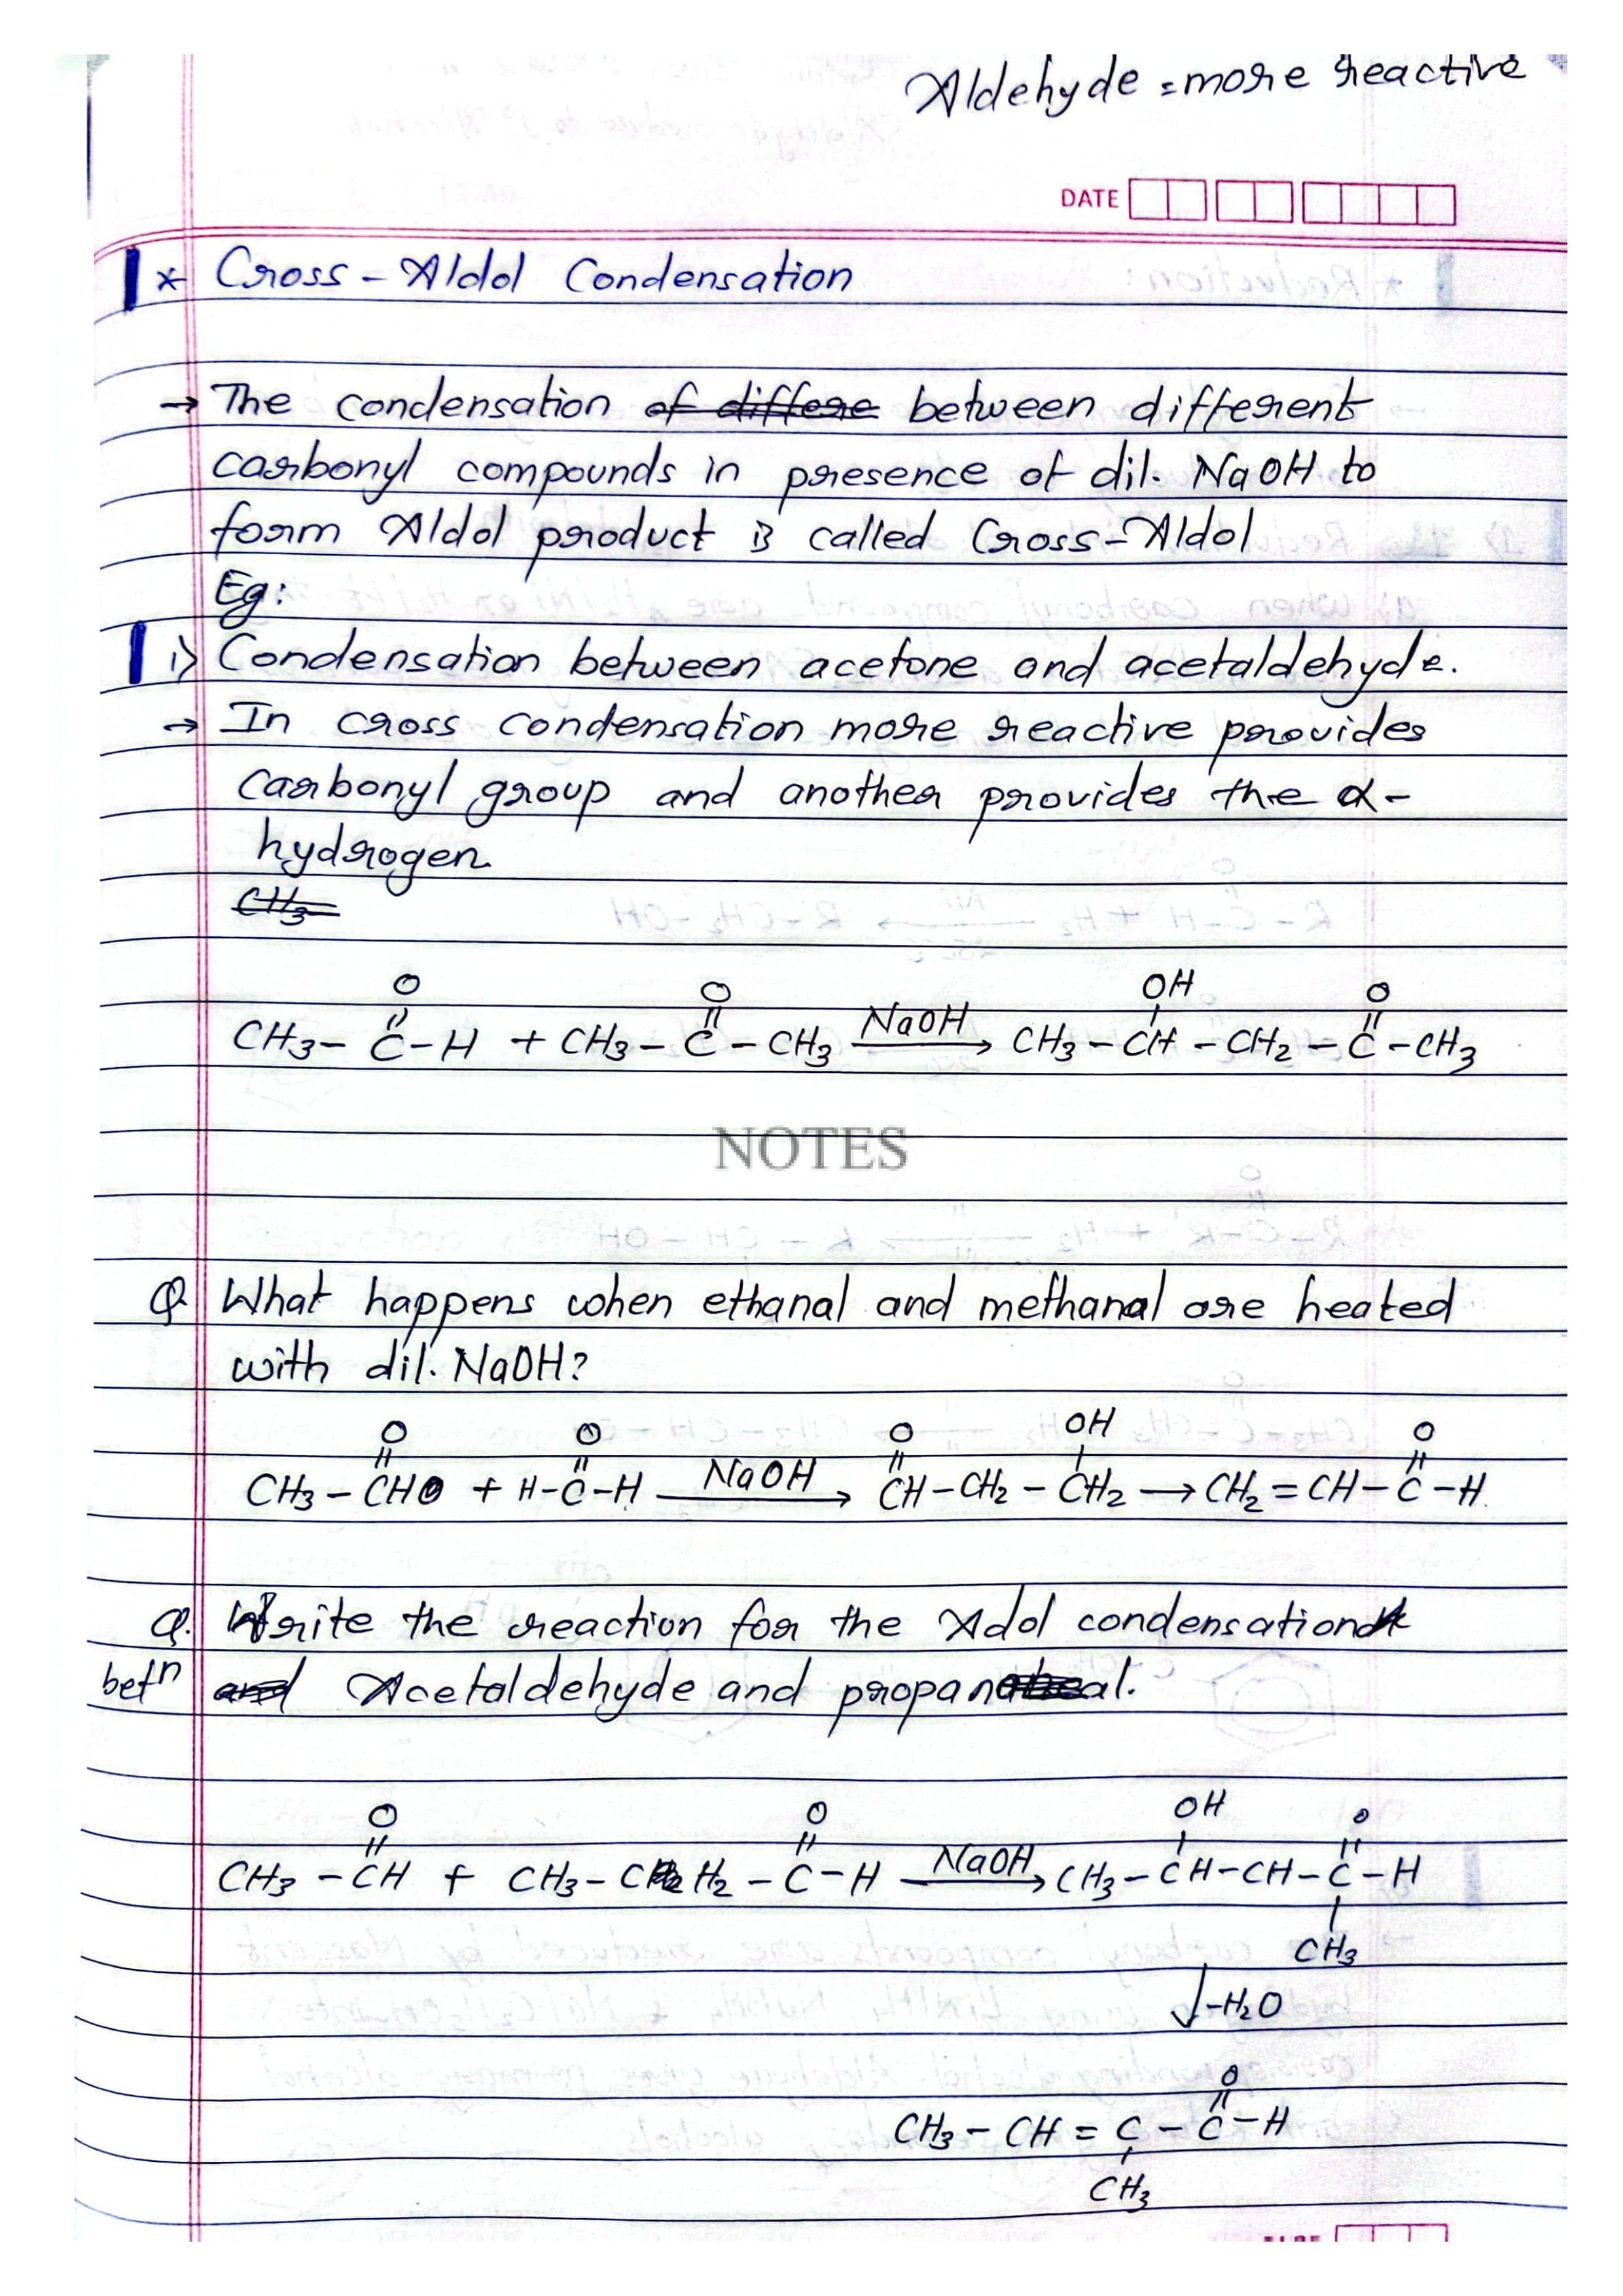 Aldehyde = more reactive
DATE
* Cross - Aldol Condensation
→ The condensation of differe between different
carbonyl compounds in presence of dil. NaOH to
form Aldol product is called Cross-Aldol
Eg:
i) Condensation between acetone and acetaldehyde.
→ In cross condensation more reactive provides
carbonyl group and another provides the α-
hydrogen
CH3
O O OH O
CH3 - C - H + CH3 - C - CH3 NaOH → CH3 - CH - CH2 - C - CH3
NOTES
Q What happens when ethanal and methanal are heated
with dil. NaOH?
O O O OH O
CH3 - CHO + H-C-H NaOH → CH - CH2 - CH2 → CH2 = CH - C - H
Q. Write the reaction for the Addl condensation
betn and Acetaldehyde and propanal.
O O OH O
CH3 - CH + CH3 - CH2 - C - H NaOH → CH3 - CH - CH - C - H
CH3
↓ -H2O
O
CH3 - CH = C - C - H
CH3